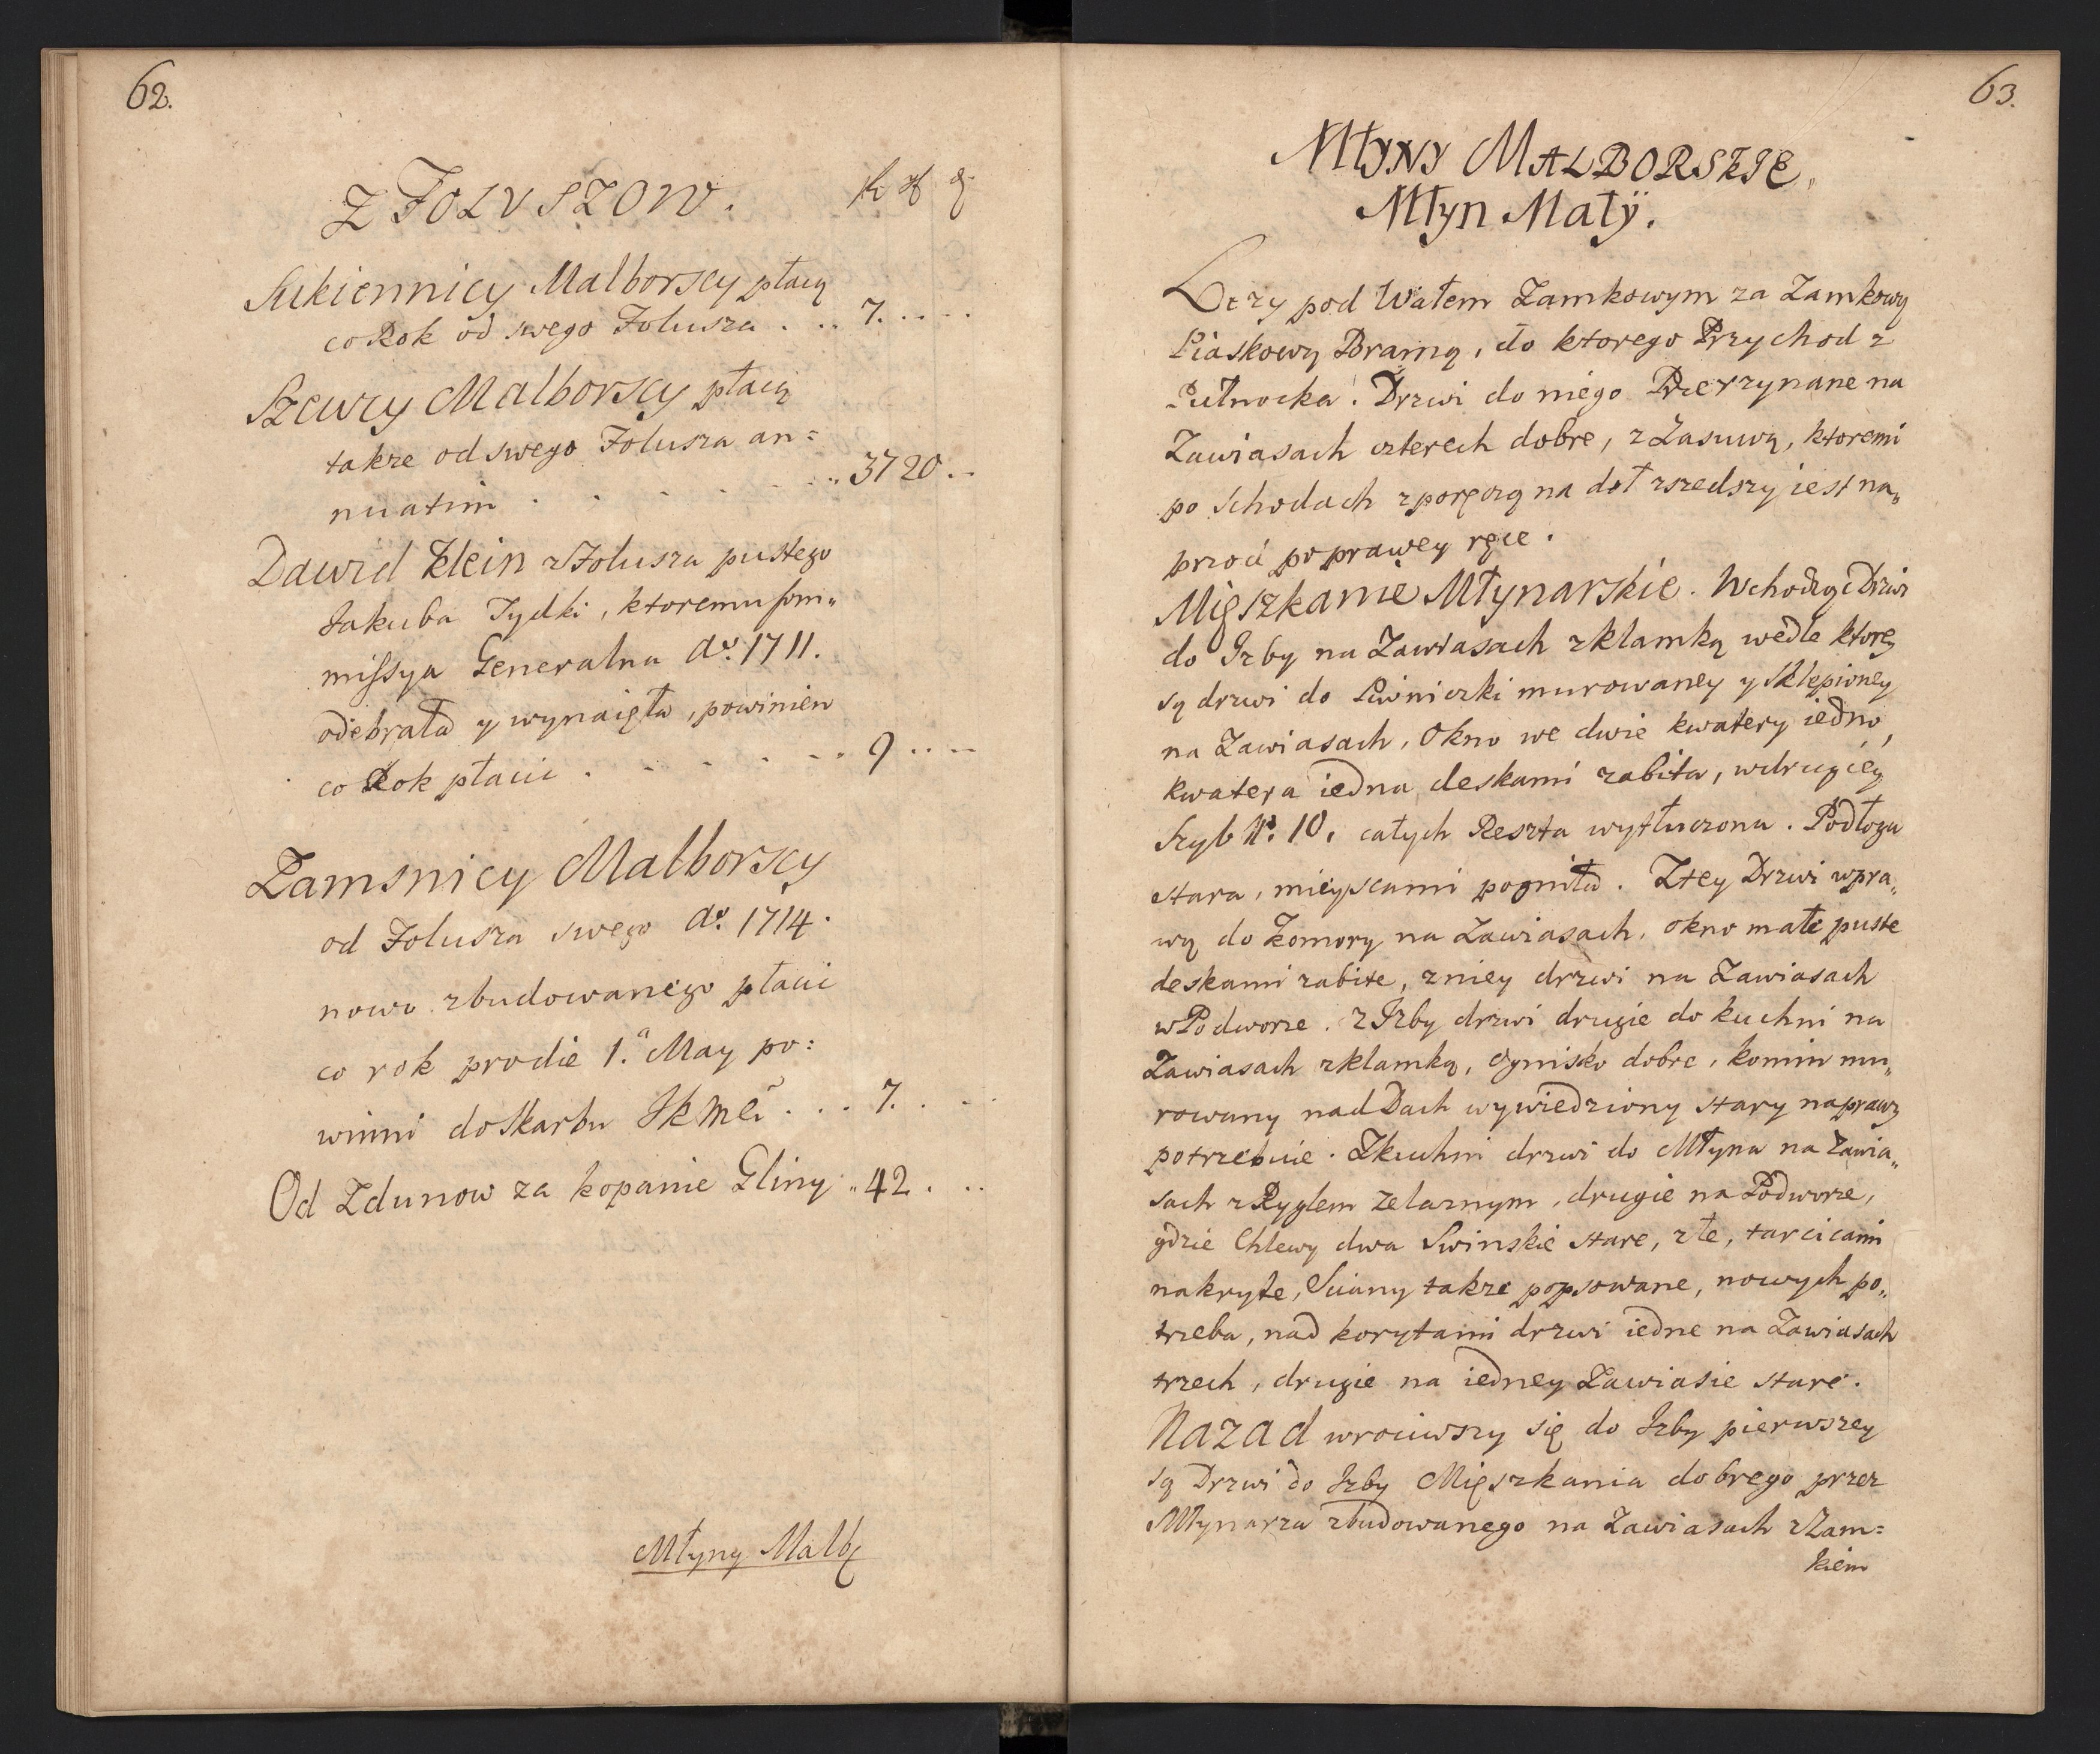 62.
Z FOLUSZOW.
Sukiennicy Malborscy płacą
co Rok od swego Folusza . .. 7. . . . .
Szewcy Malborscy płacą
takze od swego Folusza an=
nuatim . . . . . . .. 37 20 . ..
Dawid Klein z Folusza pustego
Jakuba Tydki, ktoremu Com„
missya Generalna Ao. 1711.
odebrała y wynaięła, powinien
co Rok płacic . . . . . . .. 9 .. ..
Zamsnicy Malborscy
od Folusza swego Ao. 1714.
nowo zbudowanego płacic
co rok pro die 1.a May po:
winni do Skarbu JKMci . . . 7. . . .
Od Zdunow za kopanie Gliny .. 42 . ...
Młyny Malb
63.
MŁYNY MALBORSKIE.
Młyn Małÿ.
Lezy pod Wałem Zamkowym za Zamkową
Piaskową Bramą, do ktorego Przychod z
Pułnocka. Drzwi do niego Przerzynane na
Zawiasach czterech dobre, z Zasuwą, ktoremi
po Schodach z poręczą na doł zszedszy iest na„
przod po prawey ręce.
Mięszkanie Młynarskie. Wchodząc Drzwi
do Izby na Zawiasach z klamką wedle ktorey
są drzwi do Piwniczki murowaney y Sklepioney
na Zawiasach, Okno we dwie kwatery iedno,
kwatera iedna deskami zabita, w drugiey
Szyb No. 10. całych Reszta wytłuczona. Podłoga
stara, mieyscami pogniła. Z tey Drzwi wpra„
wą do Komory na Zawiasach, okno małe puste
deskami zabite, z niey drzwi na Zawiasach
w Podworze. Z Izby drzwi drugie do kuchni na
Zawiasach z klamką, ognisko dobre, komin mu„
rowany nad Dach wywiedziony stary naprawy
potrzebuie. Z kuchni drzwi do Młyna na Zawia„
sach z Ryglem zelaznym, drugie na Podworze,
gdzie Chlewy dwa Swinskie stare, złe, tarcicami
nakryte, Sciany takze popsowane, nowych po„
trzeba, nad korytami drzwi iedne na Zawiasach
trzech, drugie na iedney Zawiasie stare.
Nazad wrociwszy się do Izby pierwszey
są Drzwi do Izby Mięszkania dobrego przez
Młynarza zbudowanego na Zawiasach z Zam=
kiem